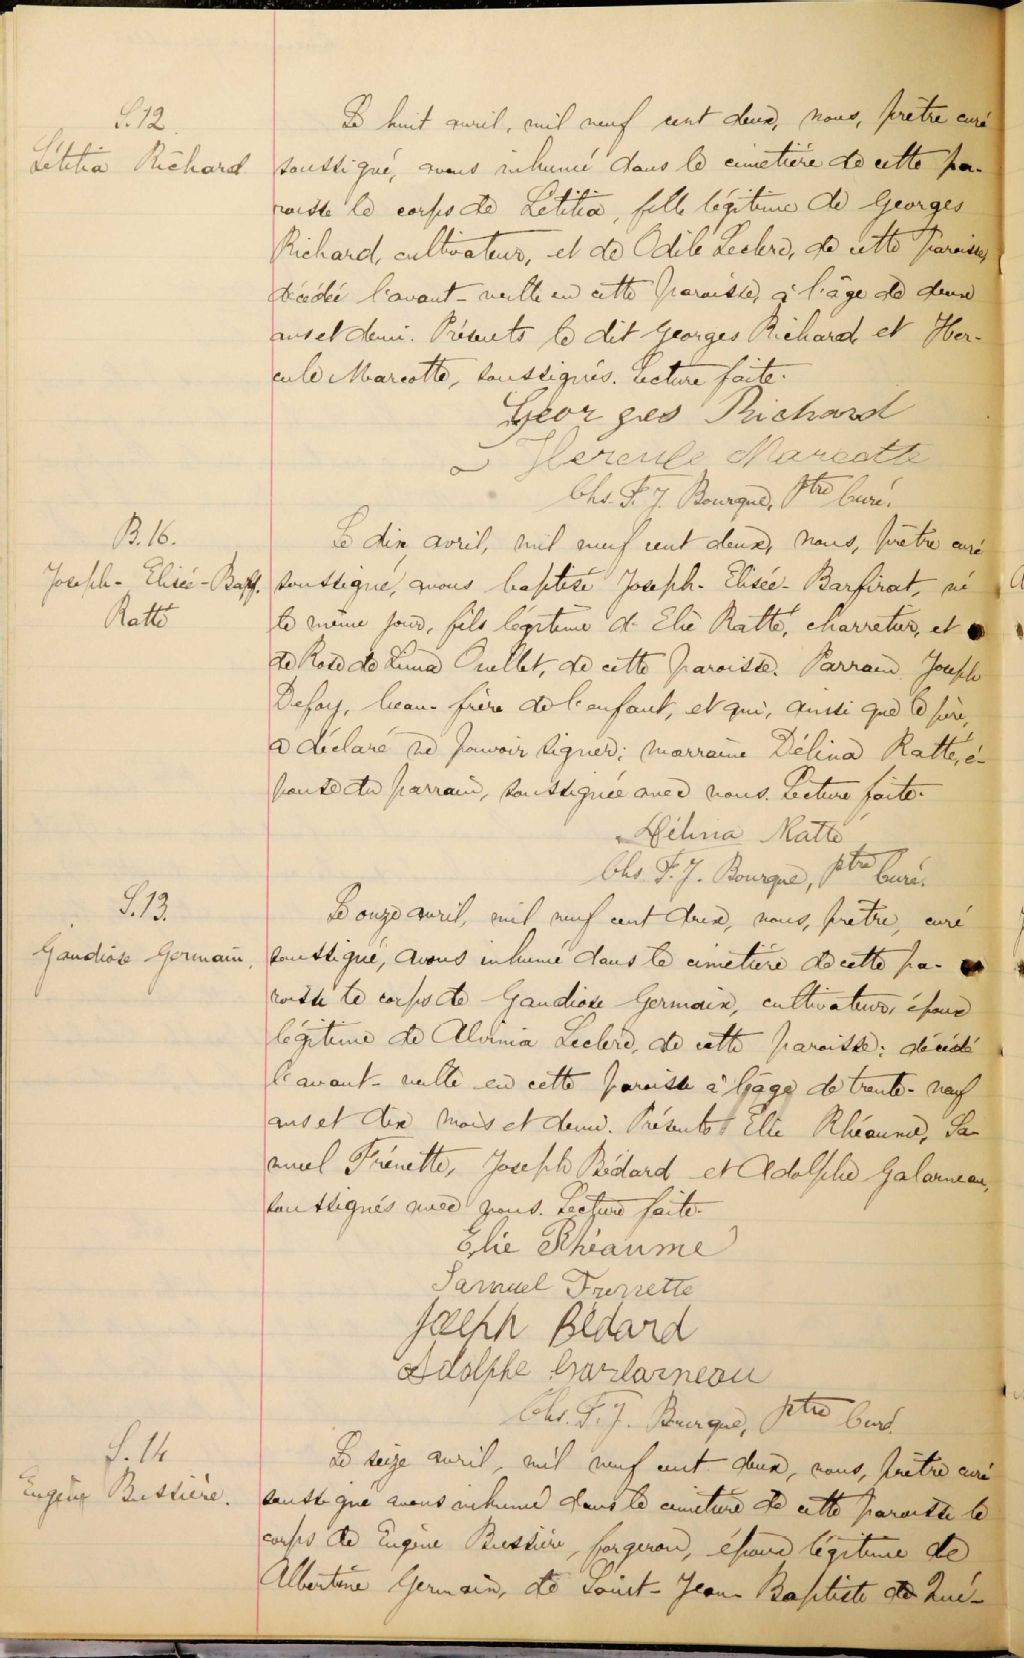 S. 12.
Létitia Richard
Le huit avril, mil neuf cent deux, nous, prêtre curé
soussigné, avons inhumé dans le cimetière de cette pa-
roisse le corps de Letitia, fille légitime de Georges
Richard, cultivateur, et de Odile Leclerc, de cette paroisse,
décédée l'avant-veille en cette paroisse, à l'âge de deux
ans et demi. Présents le dit Georges Richard et Her-
cule Marcotte, soussignés. Lecture faite.
Georges Richard
Hercule Marcotte
Chs. F. J. Bourque, Ptre Curé.
B. 16.
Joseph-Elisée-Barf.
Ratté
Le dix avril, mil neuf cent deux, nous, prêtre curé
soussigné, avons baptisé Joseph-Elisée-Barfirat, né
le même jour, fils légitime d'Elie Ratté, charretier, et
de Rose de Lima Ouellet, de cette paroisse. Parrain Joseph
Defoy, beau-frère de l'enfant, et qui, ainsi que le père,
a déclaré ne pouvoir signer; marraine Délina Ratté, é-
pouse du parrain, soussignée avec nous. Lecture faite.
Délina Ratté
Chs. F. J. Bourque, ptre Curé.
S. 13.
Gaudiose Germain.
Le onze avril, mil neuf cent deux, nous, prêtre, curé
soussigné, avons inhumé dans le cimetière de cette pa-
roisse le corps de Gaudiose Germain, cultivateur, époux
légitime de Alvinia Leclerc, de cette paroisse; décédé
l'avant-veille en cette paroisse à l'âge de trente-neuf
ans et dix mois et demi. Présents Elie Rhéaume, Sa-
muel Frénette, Joseph Bédard et Adolphe Galarneau,
soussignés avec nous. Lecture faite.
Elie Rhéaume
Samuel Frenette
Joseph Bédard
Adolphe Garlarneau
Chs. F. J. Bourque, ptre Curé.
S. 14
Eugène Bussière.
Le seize avril, mil neuf cent deux, nous, prêtre curé
soussigné avons inhumé dans le cimetière de cette paroisse le
corps de Eugène Bussière, forgeron, époux légitime de
Albertine Germain, de Saint-Jean-Baptiste de Qué-